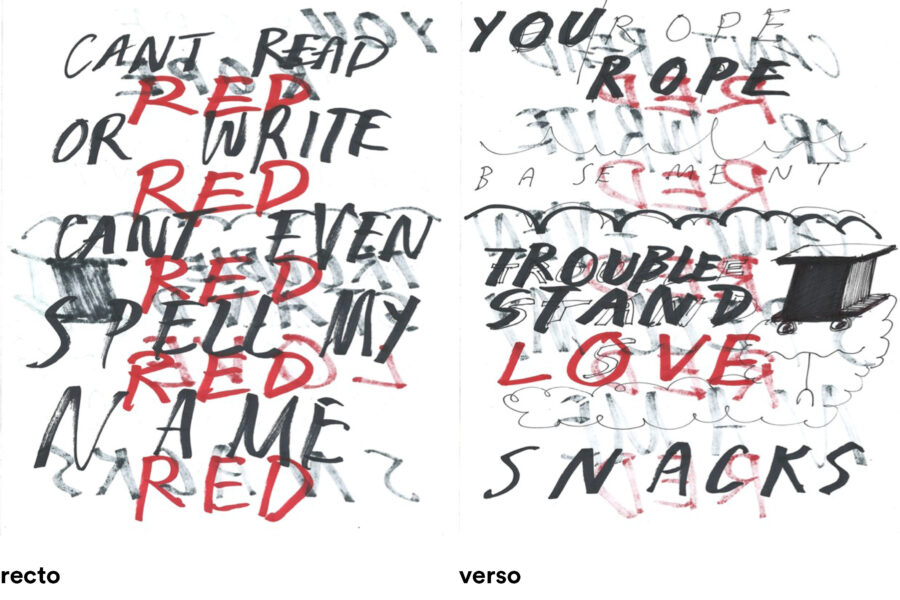 CANT READ
RED
OR WRITE
RED
CANT EVEN
RED
SPELL MY
RED
NAME
RED
recto
YOU ROPE
ROPE
BASEMENT
TROUBLE
STAND
LOVE
SNACKS
verso